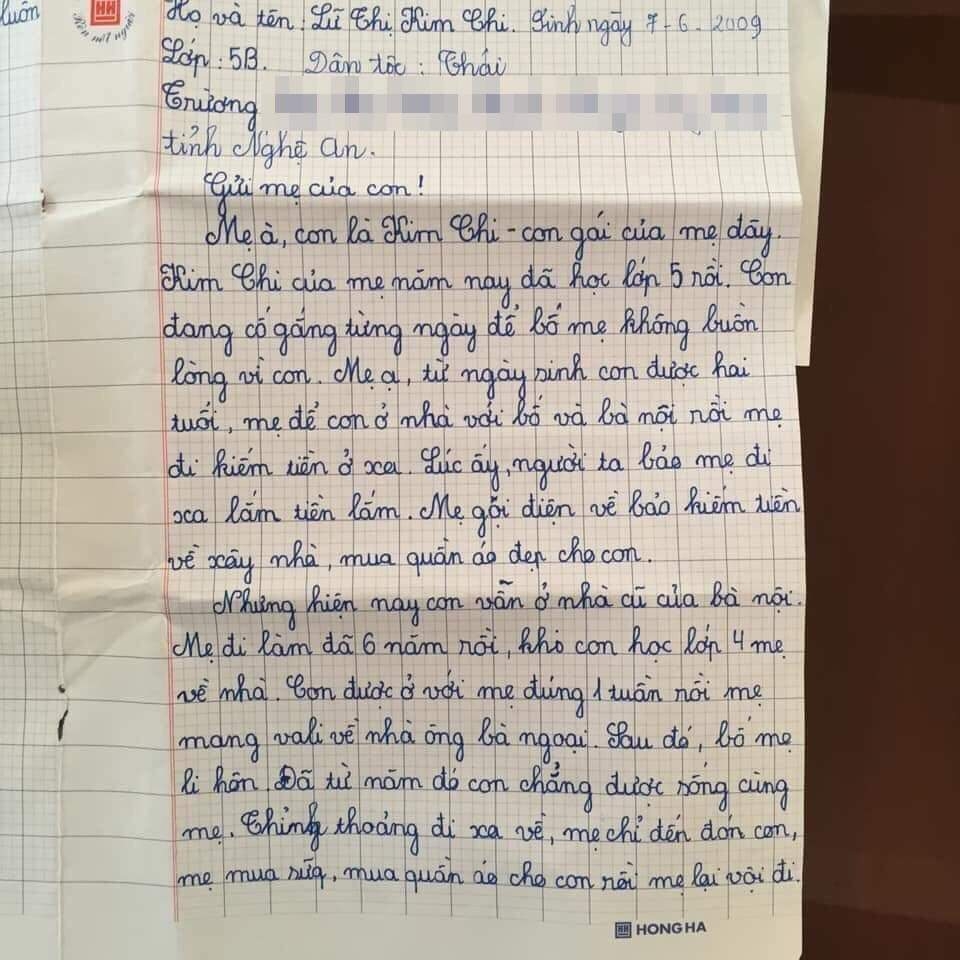 luôn
HH
Nét nết người
Họ và tên: Lữ Thị Kim Chi. Sinh ngày 7-6-2009
Lớp: 5B. Dân tộc: Thái
Trường
tỉnh Nghệ An.
Gửi mẹ của con!
Mẹ à, con là Kim Chi - con gái của mẹ đây.
Kim Chi của mẹ năm nay đã học lớp 5 rồi. Con
đang cố gắng từng ngày để bố mẹ không buồn
lòng vì con. Mẹ ạ, từ ngày sinh con được hai
tuổi, mẹ để con ở nhà với bố và bà nội rồi mẹ
đi kiếm tiền ở xa. Lúc ấy, người ta bảo mẹ đi
xa lắm tiền lắm. Mẹ gọi điện về bảo kiếm tiền
về xây nhà, mua quần áo đẹp cho con.
Nhưng hiện nay con vẫn ở nhà cũ của bà nội.
Mẹ đi làm đã 6 năm rồi, khi con học lớp 4 mẹ
về nhà. Con được ở với mẹ đúng 1 tuần rồi mẹ
mang vali về nhà ông bà ngoại. Sau đó, bố mẹ
li hôn. Đã từ năm đó con chẳng được sống cùng
mẹ. Thỉnh thoảng đi xa về, mẹ chỉ đến đón con,
mẹ mua sữa, mua quần áo cho con rồi mẹ lại vội đi.
HH HONG HA